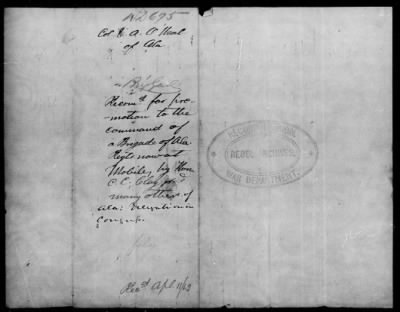 Col. E. A. O'Neal
of Ala
Brigade
Recmd for pro-
motion to the
command of
a Brigade of Ala
Regts now at
Mobile, by Hon
C. C. Clay and
many others of
Ala: Delegation in
Congress.
Recd Apl. 11/62
RECORD DIVISION
REBEL ARCHIVES
WAR DEPARTMENT.